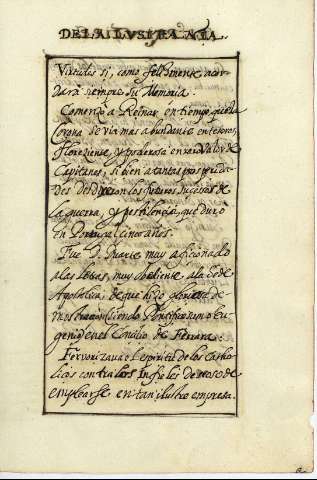 DE LA LUSITANIA.
Virtudes si, como felizmente, acor-
dará siempre su Memoria.
Començò a Reinar en tiempo, que la
Corona se via mas abundante en tesoros,
Floreziente, y poderosa en valor de
Capitanes, si bien a tantas prosperida-
des desdixeron los futuros sucessos de
la guerra, y pestilencia, que duro
en Portugal cinco años.
Fue D. Duarte muy aficionado
a las letras, muy obediente, a la Sede
Apostolica, de que hizo gloriosa de-
mostracion siendo Pontifice Eu-
genio en el Concilio de Ferrara.
Fervorizava el espiritu de los Catho-
licos contra los Infieles deseoso de
emplearse, en tan ilustre empresa.